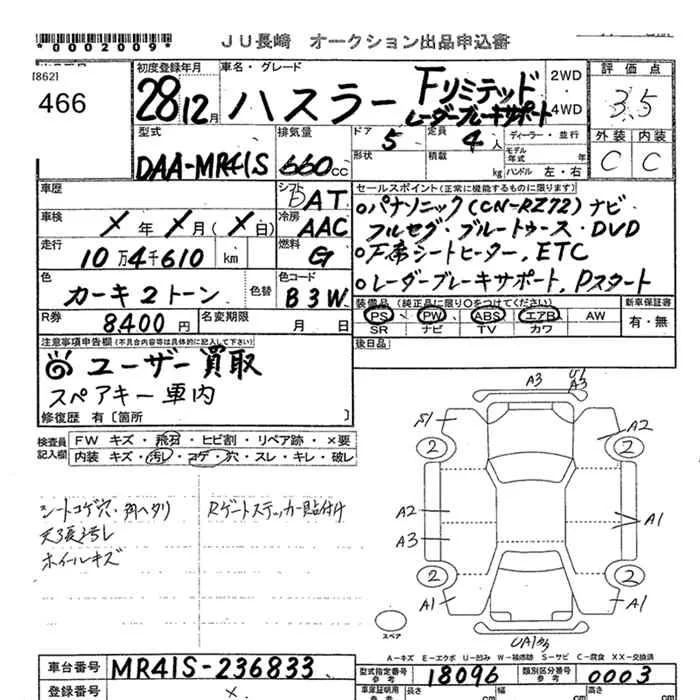 *0002009*
JU長崎 オークション出品申込書
[862]
466
初度登録年月
28 12月
車名・グレード
ハスラー Fリミテッド
レーダーブレーキサポート
2WD
・
4WD
評価点
3.5
外装 内装
C C
型式
DAA-MR41S
排気量
660cc
ドア 5
定員 4人
ディーラー・並行
形状
積載 kg
モデル年式 年
ハンドル 左・右
車歴
シフト DAT
車検 X年X月(X日)
冷房 AAC
走行 10万4千610 km
燃料 G
色 カーキ2トーン
色替
色コード B3W
R券 8,400円
名変期限 月 日
セールスポイント(正常に機能するものに限ります)
○パナソニック(CN-RZ72)ナビ
フルセグ・ブルートゥース・DVD
○下席シートヒーター, ETC
○レーダーブレーキサポート, Pスタート
装備品(純正品に限り○をつけてください)
PS PW ABS エアB AW
SR ナビ TV カワ
新車保証書
有・無
後日品
注意事項申告欄(不具合内容等は具体的に記入して下さい)
ユーザー買取
スペアキー車内
修復歴 有〔箇所 〕
検査員記入欄
FW キズ・飛石・ヒビ割・リペア跡・×要
内装 キズ・汚レ・コゲ・穴・スレ・キレ・破レ
シートコゲ穴・
ホイールキズ
Rゲートステッカー貼付け
A3
U1
A3
A2
2
2
A2
A3
A1
2
2
A1
A1
スペア
A-キズ E-エクボ U-凹み W-補修跡 S-サビ C-腐食 XX-交換済
車台番号 MR41S-236833
登録番号 X
型式指定番号 参考 18096
類別区分番号 参考 0003
車庫証明用 参考
長さ cm
幅 cm
高さ cm